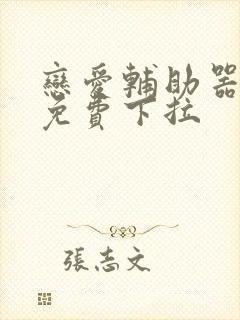 戀愛輔助器
免費下拉
張志文